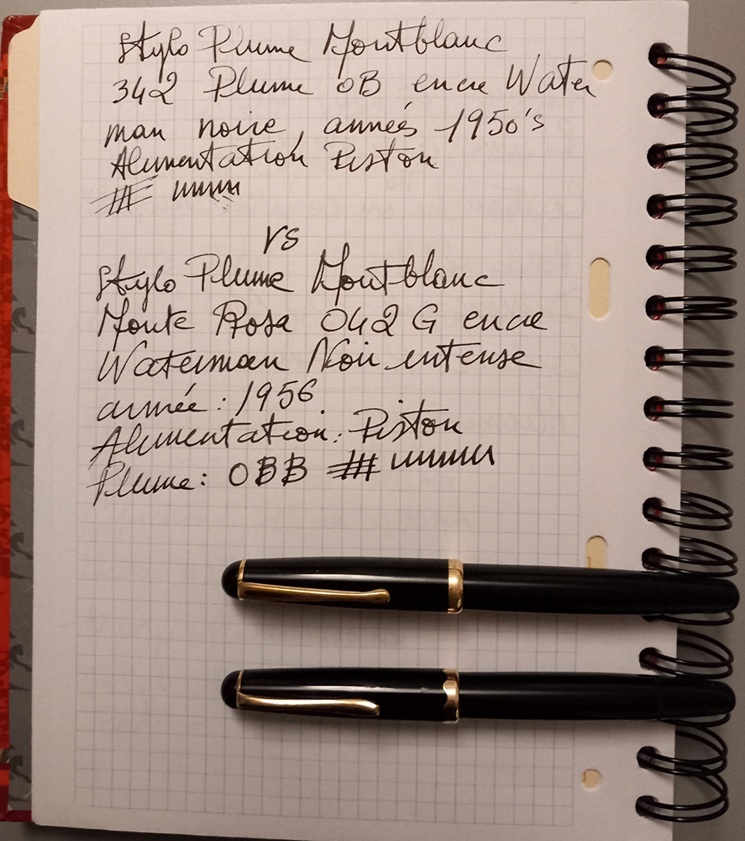 Stylo Plume Montblanc
342 Plume OB encre Water
man noire, années 1950's
Alimentation Piston
vs
Stylo Plume Montblanc
Monte Rosa 042 G encre
Waterman Noir intense
année : 1956
Alimentation : Piston
Plume : OBB